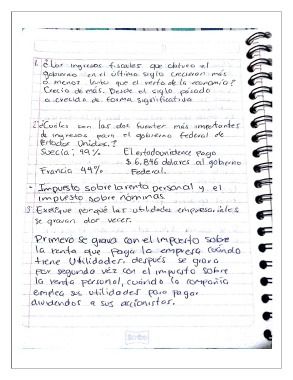 1. ¿Los ingresos fiscales que obtuvo el
gobierno en el último siglo crecieron más
o menos lento que el resto de la economía?
Creció de más. Desde el siglo pasado
a crecido de forma significativa
2. ¿Cuáles son las dos fuentes más importantes
de ingresos para el gobierno federal de
Estados Unidos?
Suecia; 49% El estadounidense paga
$6.846 dólares al gobierno
Francia 44% Federal.
• Impuesto sobre la renta personal y el
impuesto sobre nóminas.
3. Explique por qué las utilidades empresariales
se gravan dos veces.
Primero se grava con el impuesto sobre
la renta que paga la empresa cuando
tiene Utilidades, después se grava
por segunda vez con el impuesto sobre
la renta personal, cuando la compañía
emplea sus utilidades para pagar
dividendos a sus accionistas.
Scribe